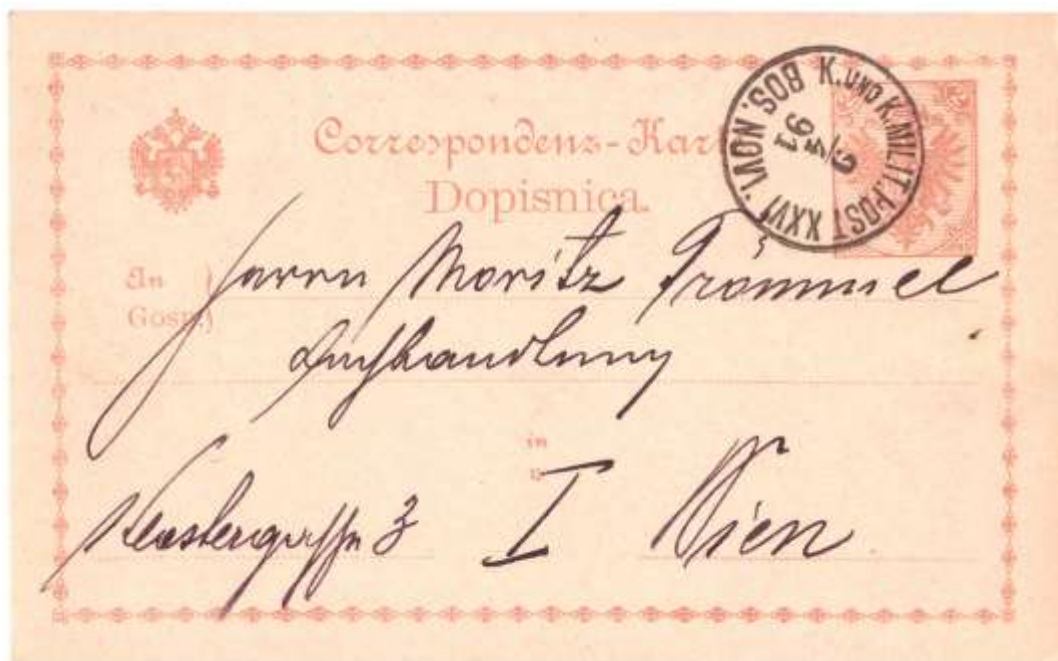 Correspondenz-Kar
Dopisnica.
K. UND K. MILIT. POST XXVI
BOS. NOVI.
9/5
91
An
Gosp.)
Herrn Moritz Frömmel
Buchhandlung
in
u
I Wien